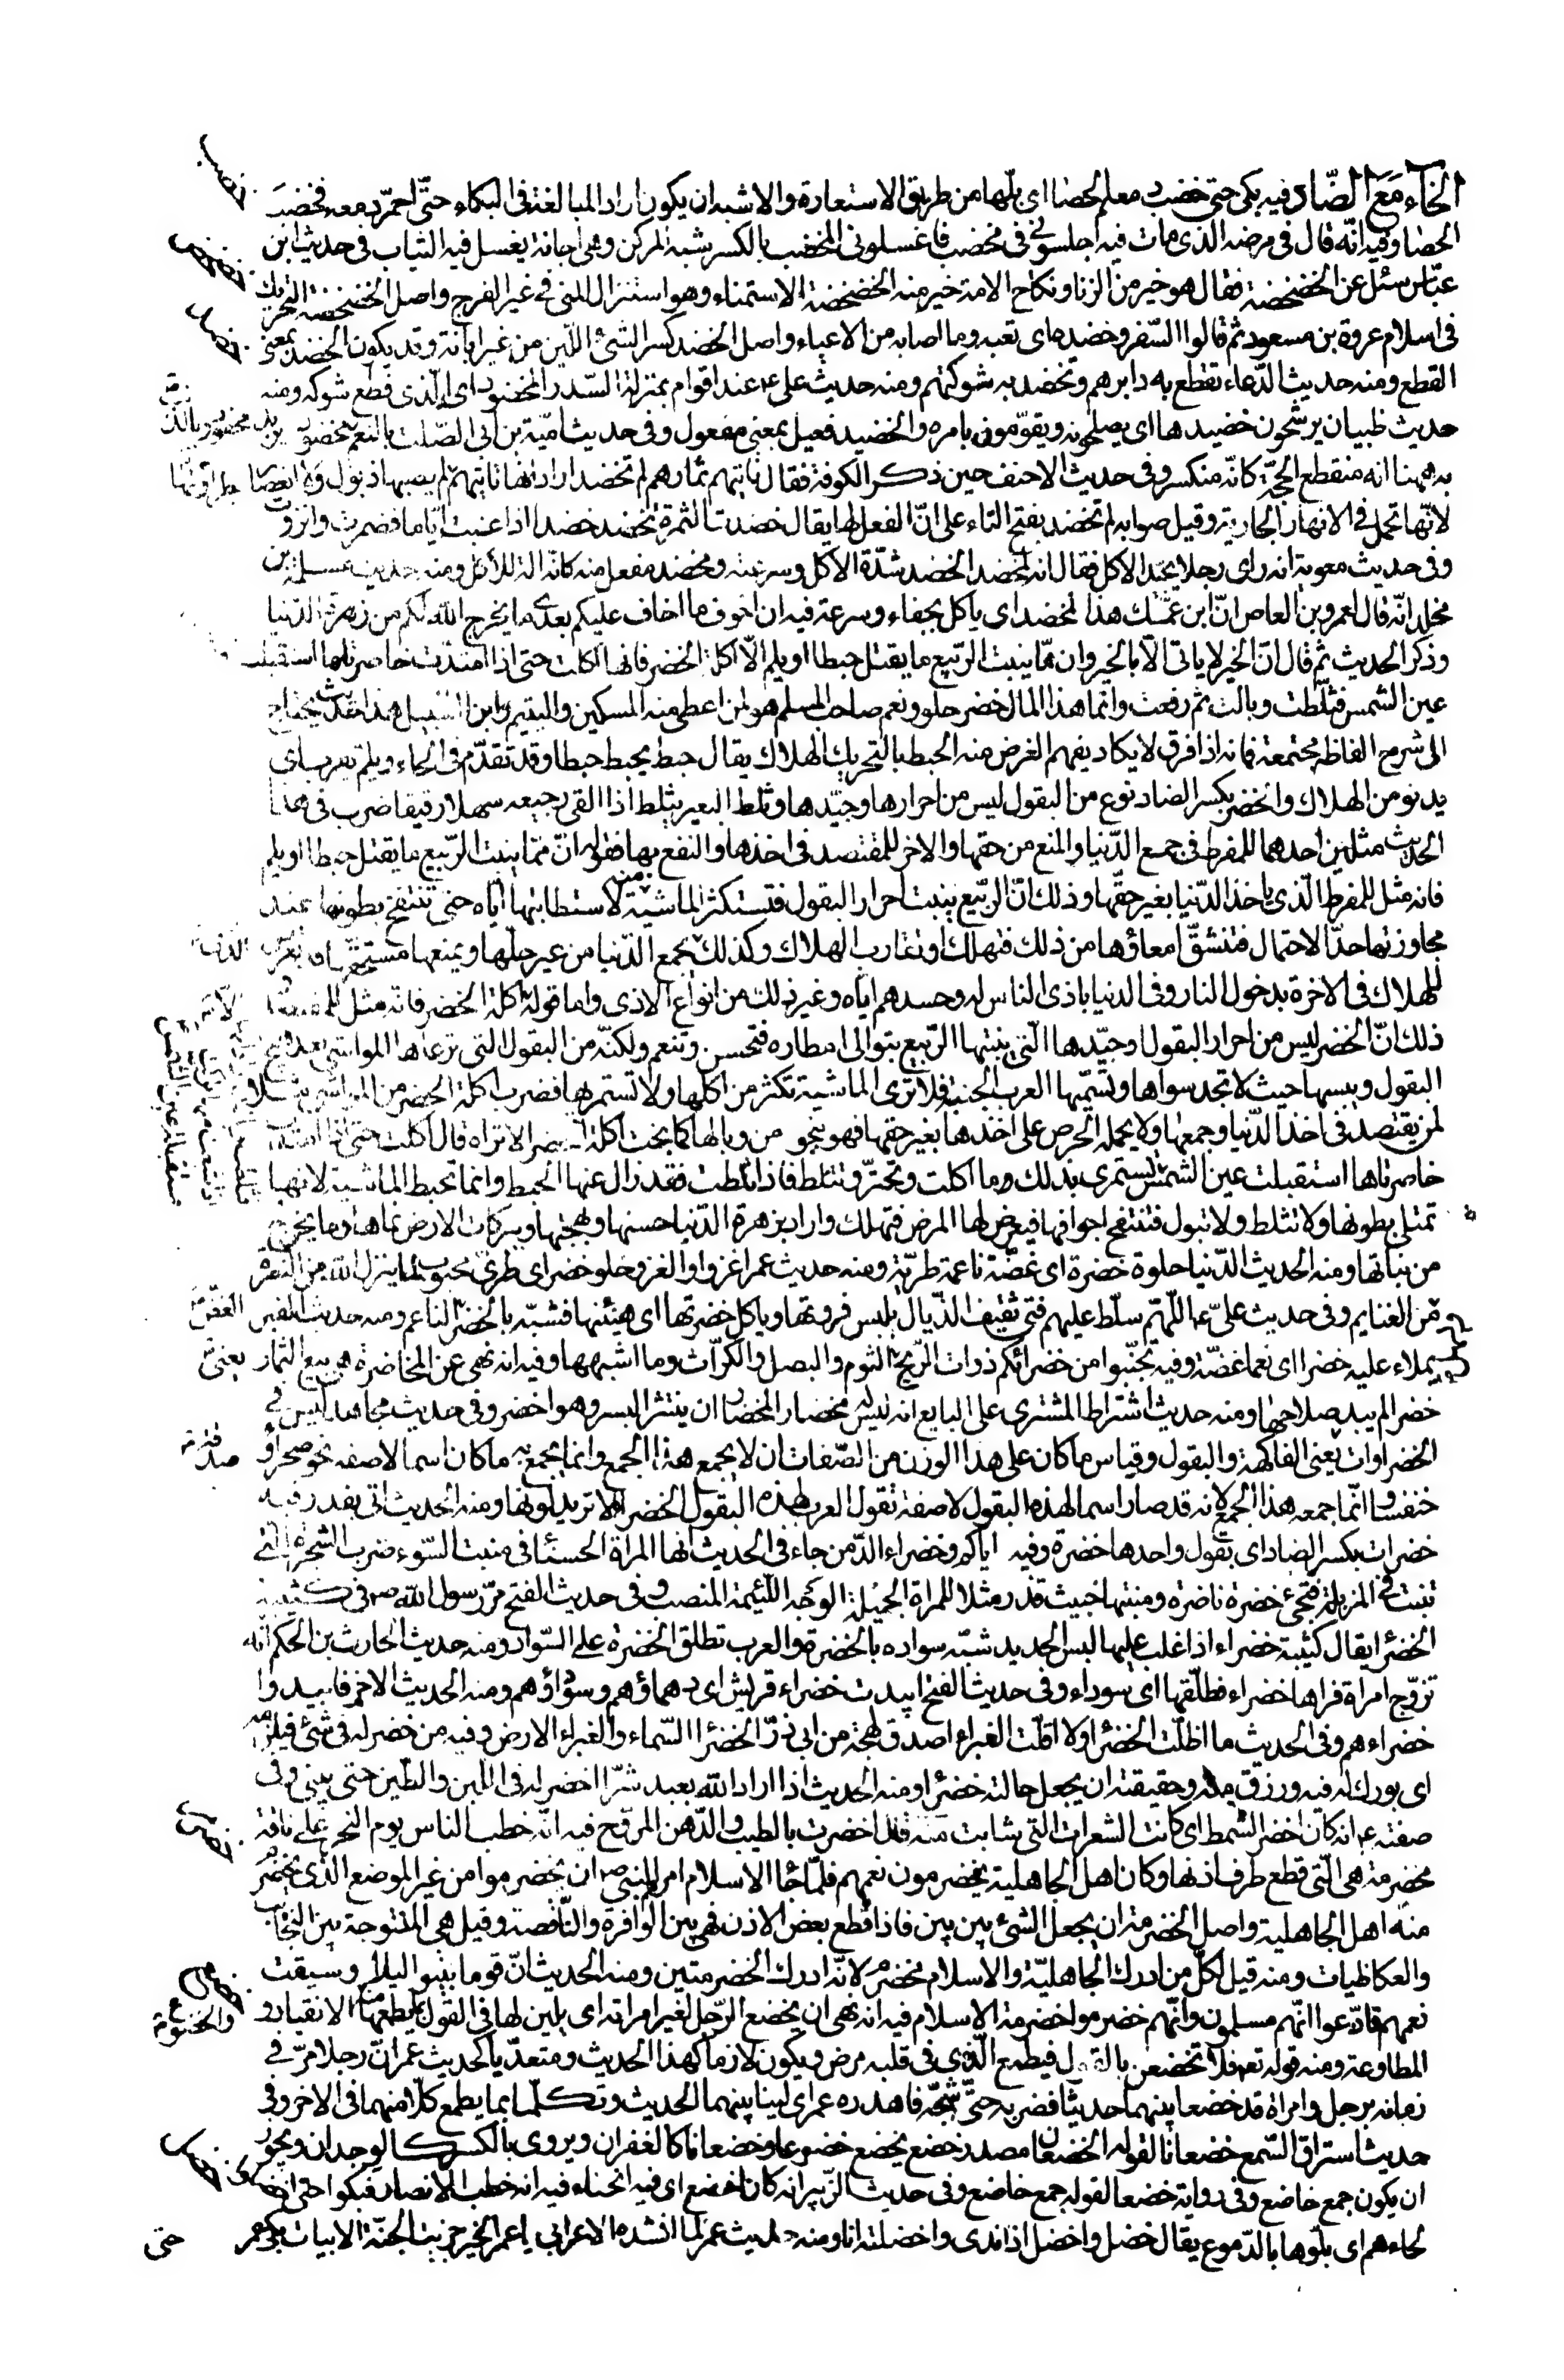 الخاء مع الضاد فيه بكى حتى خضب دمعه الحصا اى بلها من طريق الاستعارة والاشبه ان يكون اراد المبالغة فى البكاء حتى احمر دمعه فخضب
الحصا وفيه انه قال فى مرضه الذى مات فيه اجلسونى فى مخضب فاغسلونى المخضب بالكسر شبه المركن وهى اجانة يغسل فيه الثياب فى حديث ابن
عباس سئل عن الخضخضة فقال هو خير من الزنا ونكاح الامة خير منه الخضخضة الاستمناء وهو استنزال المنى فى غير الفرج واصل الخضخضة التحريك
فى اسلام عروة بن مسعود ثم قالوا السفر وخضده اى تعبه وما اصابه من الاعياء واصل الخضد كسر الشئ اللين من غير ابانة وقد يكون الخضد بمعنى
القطع ومنه حديث الدعاء تقطع به دابرهم وتخضد به شوكتهم ومنه حديث على ع عند اقوام بمنزلة السدر المخضود اى الذى قطع شوكه ومنه
حديث ظبيان يرشحون خضيدها اى يصلحونه ويقومون بامره والخضيد فعيل بمعنى مفعول وفى حديث امية بن ابى الصلت بالنعم مخضود يريد
به ههنا انه منقطع الحجة كانه منكسر وفى حديث الاحنف حين ذكر الكوفة فقال تاتيهم ثمارهم لم تخضد اراد انها تاتيهم لم يصبها ذبول ولا انعصار
لانها تحمل فى الانهار الجارية وقيل صوابه لم تخضد بفتح التاء على ان الفعل لها يقال خضدت الثمرة تخضد خضدا اذا غبت اياما فضمرت وانزوت
وفى حديث معوية انه راى رجلا يجيد الاكل فقال انه لمخضد الخضد شدة الاكل وسرعته ومخضد مفعل منه كانه الة للاكل ومنه حديث مسلمة بن
مخلد انه قال لعمرو بن العاص ان ابن عمك هذا لمخضد اى ياكل بجفاء وسرعة فيه ان اخوف ما اخاف عليكم بعدى ما يخرج الله لكم من زهرة الدنيا
وذكر الحديث ثم قال ان الخير لا ياتى الا بالخير وان مما ينبت الربيع ما يقتل حبطا او يلم الا اكلة الخضر فانها اكلت حتى اذا امتدت خاصرتاها استقبلت
عين الشمس فثلطت وبالت ثم رتعت وانما هذا المال خضر حلو ونعم صاحب المسلم هو لمن اعطى منه المسكين واليتيم وابن السبيل هذا حديث يحتاج
الى شرح الفاظه مجتمعة فانه اذا فرق لا يكاد يفهم الغرض منه الحبط بالتحريك الهلاك يقال حبط يحبط حبطا وقد تقدم فى الحاء ويلم يقرب اى
يدنو من الهلاك والخضر بكسر الضاد نوع من البقول ليس من احرارها وجيدها وثلط البعير يثلط اذا القى رجيعه سهلا رقيقا ضرب فى هذا
الحديث مثلين احدهما للمفرط فى جمع الدنيا والمنع من حقها والاخر للمقتصد فى اخذها والنفع بها فقوله ان مما ينبت الربيع ما يقتل حبطا او يلم
فانه مثل للمفرط الذى ياخذ الدنيا بغير حقها وذلك ان الربيع ينبت احرار البقول فتستكثر الماشية منه لاستطابتها اياه حتى تنتفخ بطونها عند
مجاوزتها حد الاحتمال فتنشق امعاؤها من ذلك فتهلك او تقارب الهلاك وكذلك يجمع الدنيا من غير حلها ويمنعها مستحقها
للهلاك فى الاخرة بدخول النار وفى الدنيا باذى الناس له وحسدهم اياه وغير ذلك من انواع الاذى واما قوله الا اكلة الخضر فانه مثل للمقتصد
ذلك ان الخضر ليس من احرار البقول وجيدها التى ينبتها الربيع بتوالى امطاره فتحسن وتنعم ولكنه من البقول التى ترعاها المواشى بعد هيج
البقول ويبسها حيث لا تجد سواها وتسميها العرب الجنبة فلا ترى الماشية تكثر من اكلها ولا تستمريها فضرب اكلة الخضر من المواشى مثلا
لمن يقتصد فى اخذ الدنيا وجمعها ولا يحمله الحرص على اخذها بغير حقها فهو ينجو من وبالها كما نجت اكلة الخضر الا تراه قال اكلت حتى اذا امتدت
خاصرتاها استقبلت عين الشمس تستمرى بذلك ما اكلت وتجتر وتثلط فاذا ثلطت فقد زال عنها الحبط وانما تحبط الماشية لانها
تمتلى بطونها ولا تثلط ولا تبول فتنتفخ اجوافها فيعرض لها المرض فتهلك واراد بزهرة الدنيا حسنها وبهجتها وببركات الارض نماءها وما يخرج
من نباتها ومنه الحديث الدنيا حلوة خضرة اى غضة ناعمة طرية ومنه حديث عمر اغزوا والغزو حلو خضر اى طرى محبوب لما ينزل الله من النصر
من الغنايم وفى حديث على ع اللهم سلط عليهم فتى ثقيف الذيال يلبس فروتها وياكل خضرتها اى هنيئها فشبه بالخضر الناعم ومنه حديث القبر
يملاء عليه خضرا اى نعما غضة وفيه تجنبوا من خضرائكم ذوات الريح الثوم والبصل والكراث وما اشبهها وفيه انه نهى عن المخاضرة هى بيع الثمار
خضرا لم يبد صلاحها ومنه حديث اشتراط المشترى على البايع انه ليس له مخضار المخضار ان ينتثر البسر وهو اخضر وفى حديث مجاهد ليس فى
الخضراوات يعنى الفاكهة والبقول وقياس ما كان على هذا الوزن من الصفات ان لا يجمع هذا الجمع وانما يجمع به ما كان اسما لا صفة نحو صحراء
خنفساء وانما جمعه هذا الجمع لانه قد صار اسما لهذه البقول لا صفة تقول العرب لهذه البقول الخضراء لا تريد لونها ومنه الحديث اتى بقدر فيه
خضرات بكسر الضاد اى بقول واحدها خضرة وفيه اياكم وخضراء الدمن جاء فى الحديث انها المراة الحسناء فى منبت السوء ضرب الشجرة التى
تنبت فى المزبلة فتجئ خضرة ناضرة ومنبتها خبيث قذر مثلا للمراة الجميلة الوجه اللئيمة المنصب وفى حديث الفتح مر رسول الله ص فى كتيبته
الخضراء يقال كتيبة خضراء اذا غلب عليها لبس الحديد شبه سواده بالخضرة والعرب تطلق الخضرة على السواد ومنه حديث الحارث بن الحكم انه
تزوج امراة فراها خضراء فطلقها اى سوداء وفى حديث الفتح ابيدت خضراء قريش اى دهماؤهم وسوادهم ومنه الحديث الاخر فابيدوا
خضراءهم وفى الحديث ما اظلت الخضراء ولا اقلت الغبراء اصدق لهجة من ابى ذر الخضراء السماء والغبراء الارض وفيه من خضر له فى شئ فليلزمه
اى بورك له فيه ورزق منه وحقيقته ان يجعل حالته خضراء ومنه الحديث اذا اراد الله بعبد شرا اخضر له فى اللبن والطين حتى يبنى وفى
صفته ع انه كان اخضر الشمط اى كانت الشعرات التى شابت منه قد اخضرت بالطيب والدهن المروح فيه انه خطب الناس يوم النحر على ناقة
مخضرمة هى التى قطع طرف اذنها وكان اهل الجاهلية يخضرمون نعمهم فلما جاء الاسلام امرهم النبى ص ان يخضرموا من غير الموضع الذى يخضرم
منه اهل الجاهلية واصل الخضرمة ان يجعل الشئ بين بين فاذا قطع بعض الاذن فهى بين الوافرة والناقصة وقيل هى المنتوجة بين النجائب
والعكاظيات ومنه قيل لكل من ادرك الجاهلية والاسلام مخضرم لانه ادرك الخضرمتين ومنه الحديث ان قوما بيتوا ليلا وسيقت
نعمهم فادعوا انهم مسلمون وانهم خضرموا خضرمة الاسلام فيه انه نهى ان يخضع الرجل لغير امراته اى يلين لها فى القول بما يطمعها منه الانقياد و
المطاوعة ومنه قوله تعه فلا تخضعن بالقول فيطمع الذى فى قلبه مرض ويكون لازما كهذا الحديث ومتعديا كحديث عمر ان رجلا مر فى
زمانه برجل وامراة قد خضعا بينهما حديثا فضربه حتى شجه فاهدره عمر اى لينا بينهما الحديث وتكلما بما يطمع كلا منهما فى الاخر وفى
حديث استراق السمع خضعانا لقوله الخضعان مصدر خضع يخضع خضوعا وخضعانا كالغفران ويروى بالكسر كالوجدان ويجوز
ان يكون جمع خاضع وفى رواية خضعا لقوله جمع خاضع وفى حديث الزبير انه كان اخضع اى فيه انحناء فيه انه خطب الانصار فبكوا حتى اخضلوا
لحاءهم اى بلوها بالدموع يقال خضل واخضل اذا ندى واخضلته انا ومنه حديث عمر لما انشده الاعرابى يا عمر الخير جزيت الجنة الابيات بكى عمر
حتى